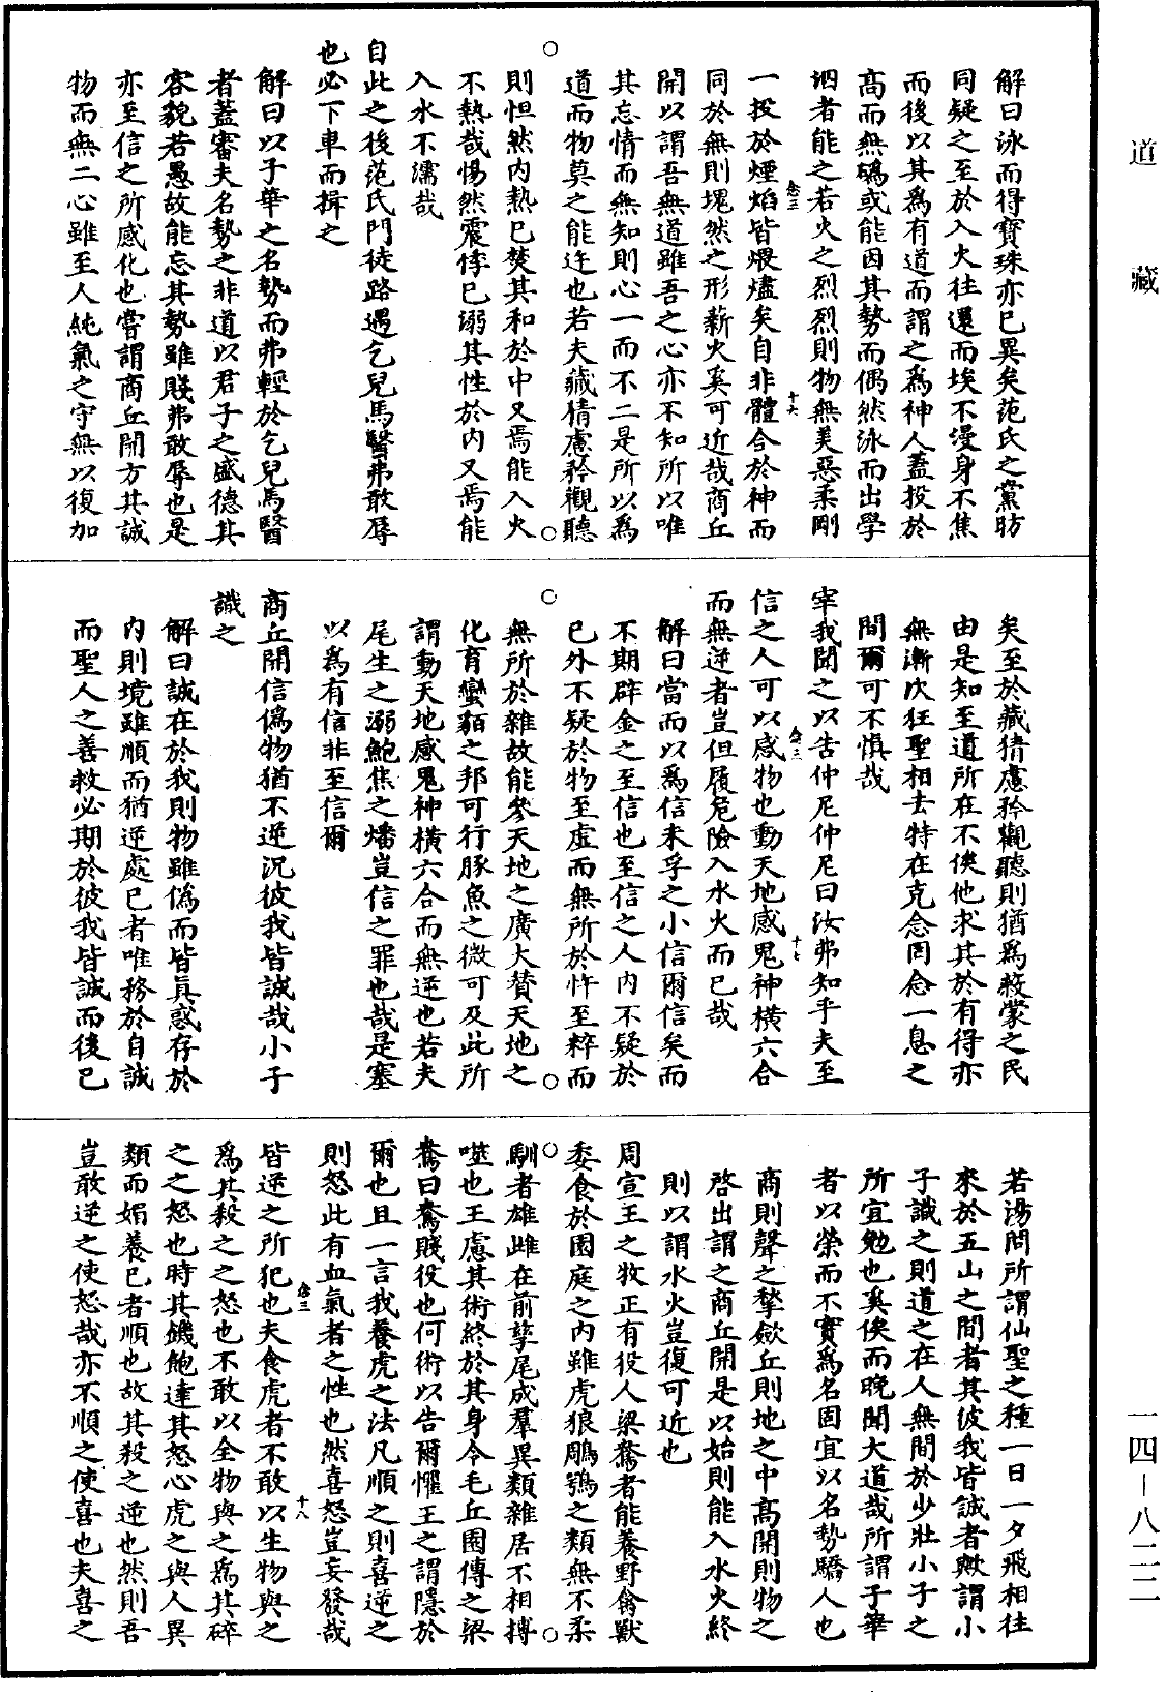 解曰泳而得寶珠亦已異矣范氏之黨昉
同疑之至於入火往還而埃不漫身不焦
而後以其爲有道而謂之爲神人蓋投於
高而無䃣或能因其勢而偶然泳而出學
泗者能之若火之烈烈則物無美惡柔剛
一投於煙焰皆煨燼矣自非體合於神而
同於無則塊然之形薪火奚可近哉商丘
開以謂吾無道雖吾之心亦不知所以唯
其忘情而無知則心一而不二是所以爲
道而物莫之能迕也若夫藏猜慮矜觀聽
則怛然内熱已焚其和於中又焉能入火
不熱哉惕然震悸已溺其性於内又焉能
入水不濡哉
自此之後范氏門徒路遇乞兒馬醫弗敢辱
也必下車而揖之
解曰以子華之名勢而弗輕於乞兒馬醫
者蓋審夫名勢之非道以君子之盛德其
容貌若愚故能忘其勢雖賤弗敢辱也是
亦至信之所感化也嘗謂商丘開方其誠
物而無二心雖至人純氣之守無以復加
矣至於藏猜慮矜觀聽則猶爲蔽蒙之民
由是知至道所在不俟他求其於有得亦
無漸次狂聖相去特在克念罔念一息之
間爾可不慎哉
宰我聞之以告仲尼仲尼曰汝弗知乎夫至
信之人可以感物也動天地感鬼神橫六合
而無逆者豈但履危險入水火而已哉
解曰當而以爲信未孚之小信爾信矣而
不期辟金之至信也至信之人内不疑於
已外不疑於物至虛而無所於忤至粹而
無所於雜故能參天地之廣大賛天地之
化育蠻貊之邦可行豚魚之微可及此所
謂動天地感鬼神橫六合而無逆也若夫
尾生之溺鮑焦之燔豈信之罪也哉是塞
以爲有信非至信爾
商丘開信僞物猶不逆況彼我皆誠哉小子
識之
解曰誠在於我則物雖僞而皆眞惑存於
内則境雖順而猶逆處已者唯務於自誠
而聖人之善救必期於彼我皆誠而後已
若湯問所謂仙聖之種一日一夕飛相往
來於五山之間者其彼我皆誠者歟謂小
子識之則道之在人無間於少壯小子之
所宜勉也奚俟而晚聞大道哉所謂子華
者以榮而不實爲名固宜以名勢驕人也
商則聲之揫歛丘則地之中高開則物之
啓出謂之商丘開是以始則能入水火終
則以謂水火豈復可近也
周宣王之牧正有役人梁鴦者能養野禽獸
委食於園庭之内雖虎狼鵰鶚之類無不柔
馴者雄雌在前孳尾成羣異類雜居不相搏
噬也王慮其術終於其身令毛丘園傳之梁
鴦曰鴦賤役也何術以告爾懼王之謂隱於
爾也且一言我養虎之法凡順之則喜逆之
則怒此有血氣者之性也然喜怒豈妄發哉
皆逆之所犯也夫食虎者不敢以生物與之
爲其殺之之怒也不敢以全物與之爲其碎
之之怒也時其饑飽達其怒心虎之與人異
類而媚養已者順也故其殺之逆也然則吾
豈敢逆之使怒哉亦不順之使喜也夫喜之
念三
十六
念三
十七
念三
十八
道藏
一四—八二二